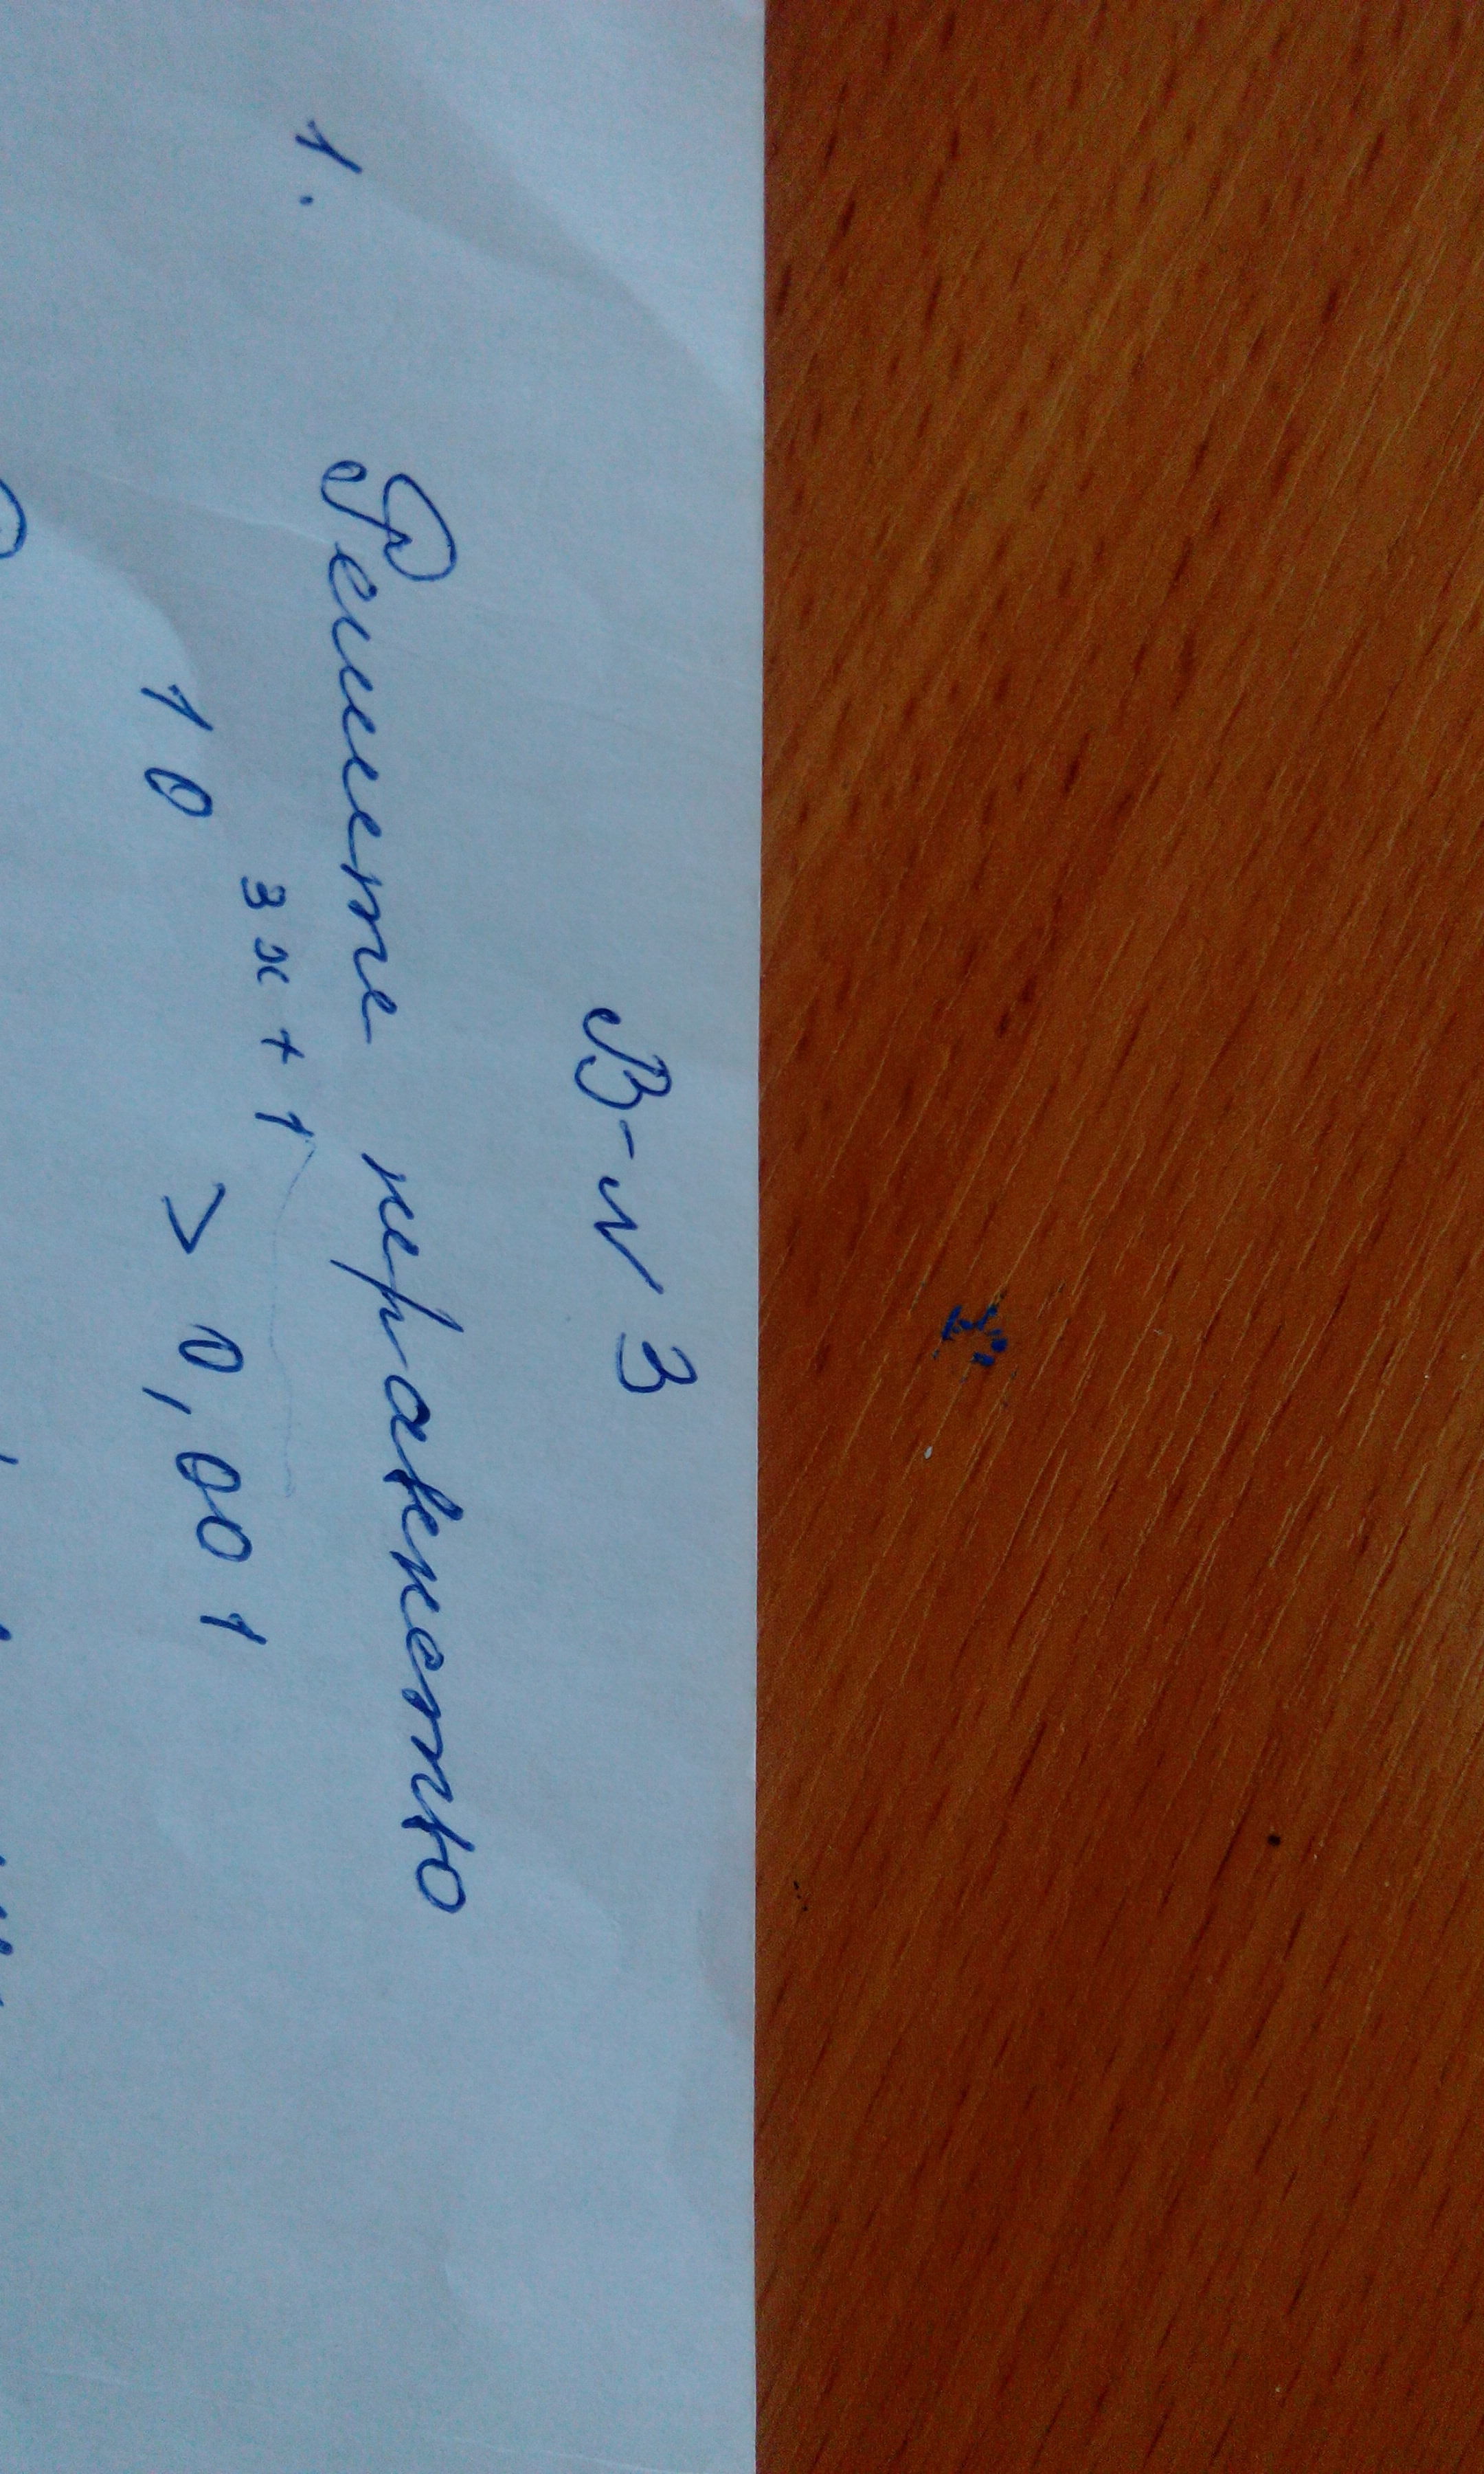 В-и 3
1. Решите неравенство
10 3x+1 > 0,001